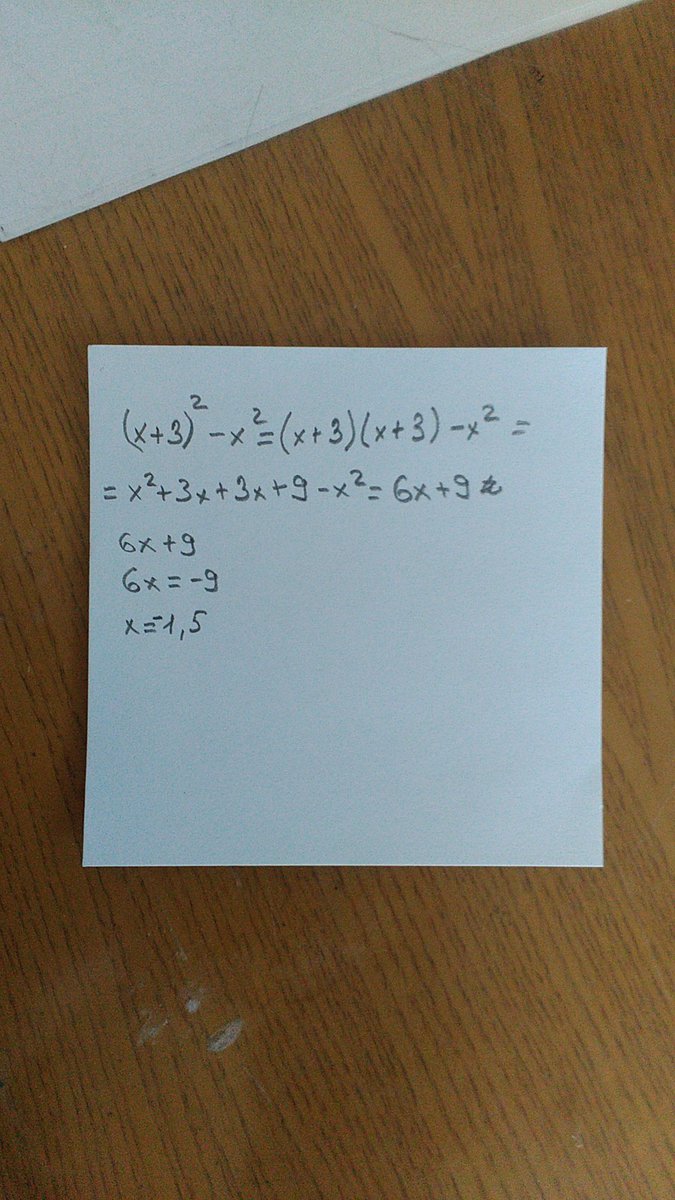 (x+3)² - x² = (x+3)(x+3) - x² =
= x² + 3x + 3x + 9 - x² = 6x + 9
6x + 9
6x = -9
x = -1,5